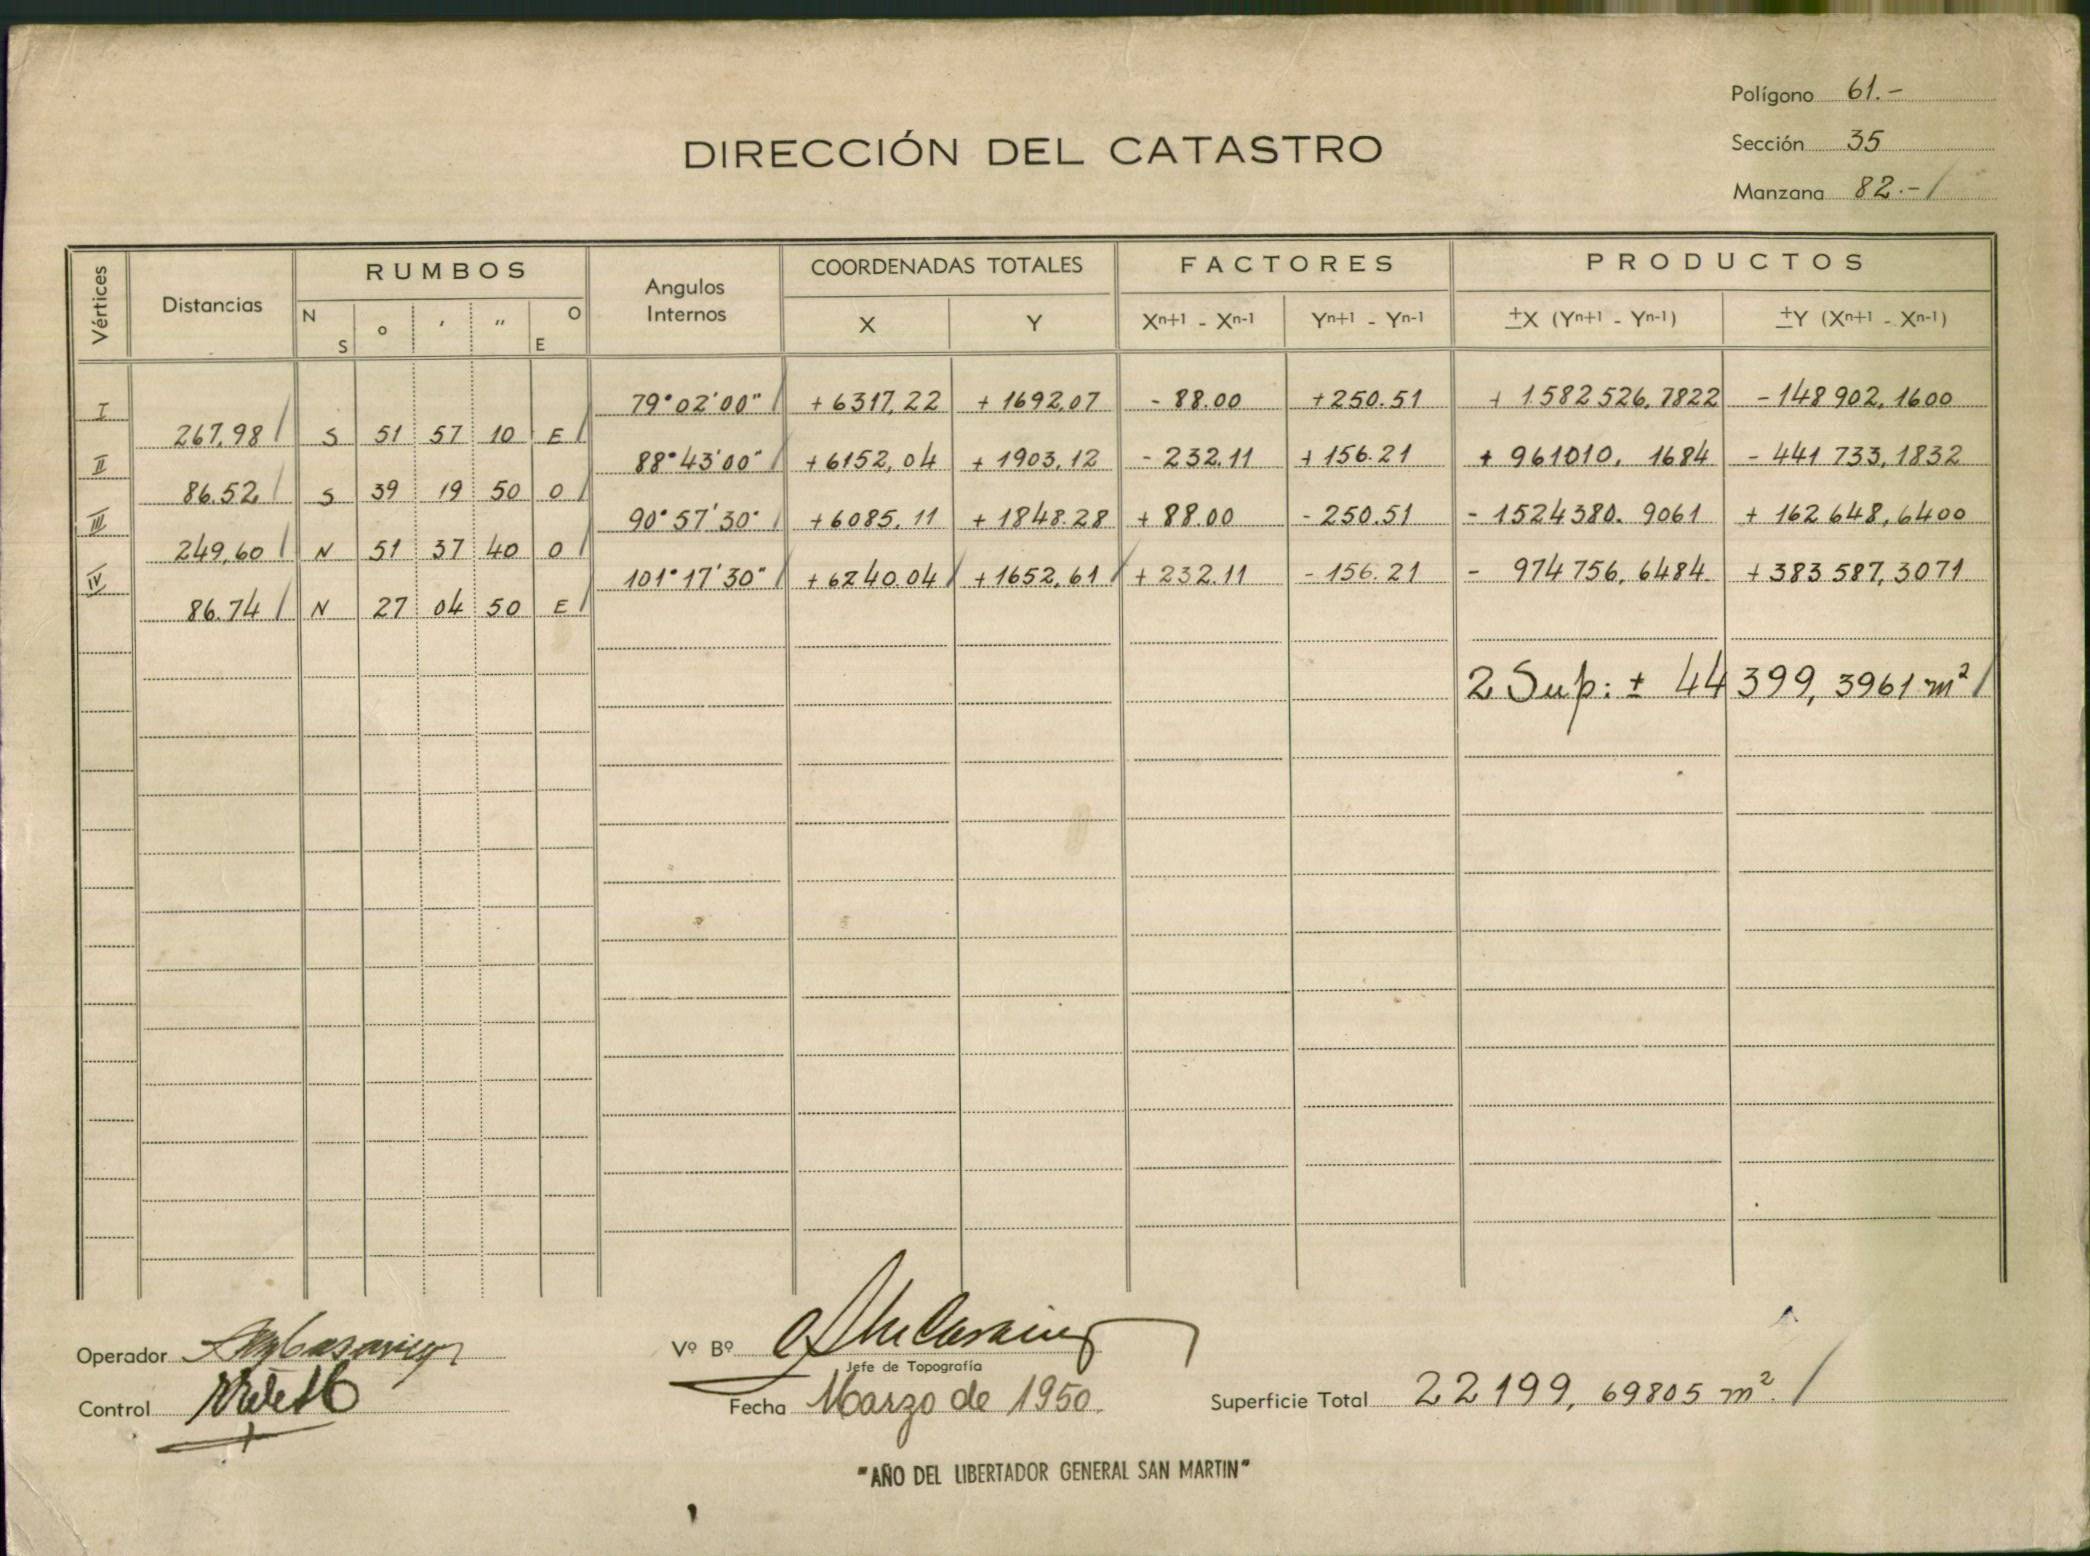 Polígono 61.-
Sección 35
Manzana 82.-/
DIRECCIÓN DEL CATASTRO
Vértices Distancias RUMBOS Angulos Internos COORDENADAS TOTALES FACTORES PRODUCTOS
N S o ' " O E X Y Xn+1 - Xn-1 Yn+1 - Yn-1 ±X (Yn+1 - Yn-1) ±Y (Xn+1 - Xn-1)
I 79°02'00" +6317,22 +1692,07 -88.00 +250.51 +1582526,7822 -148902,1600
267,98 S 51 57 10 E
II 88°43'00" +6152,04 +1903,12 -232.11 +156.21 +961010,1684 -441733,1832
86.52 S 39 19 50 O
III 90°57'30" +6085,11 +1848.28 +88.00 -250.51 -1524380.9061 +162648,6400
249,60 N 51 37 40 O
IV 101°17'30" +6240.04 +1652,61 +232.11 -156.21 -974756,6484 +383587,3071
86.74 N 27 04 50 E
2 Sup: ± 44399,3961 m²
Operador
Vº Bº
Jefe de Topografía
Control
Fecha Marzo de 1950.
Superficie Total 22199,69805 m².
"AÑO DEL LIBERTADOR GENERAL SAN MARTIN"